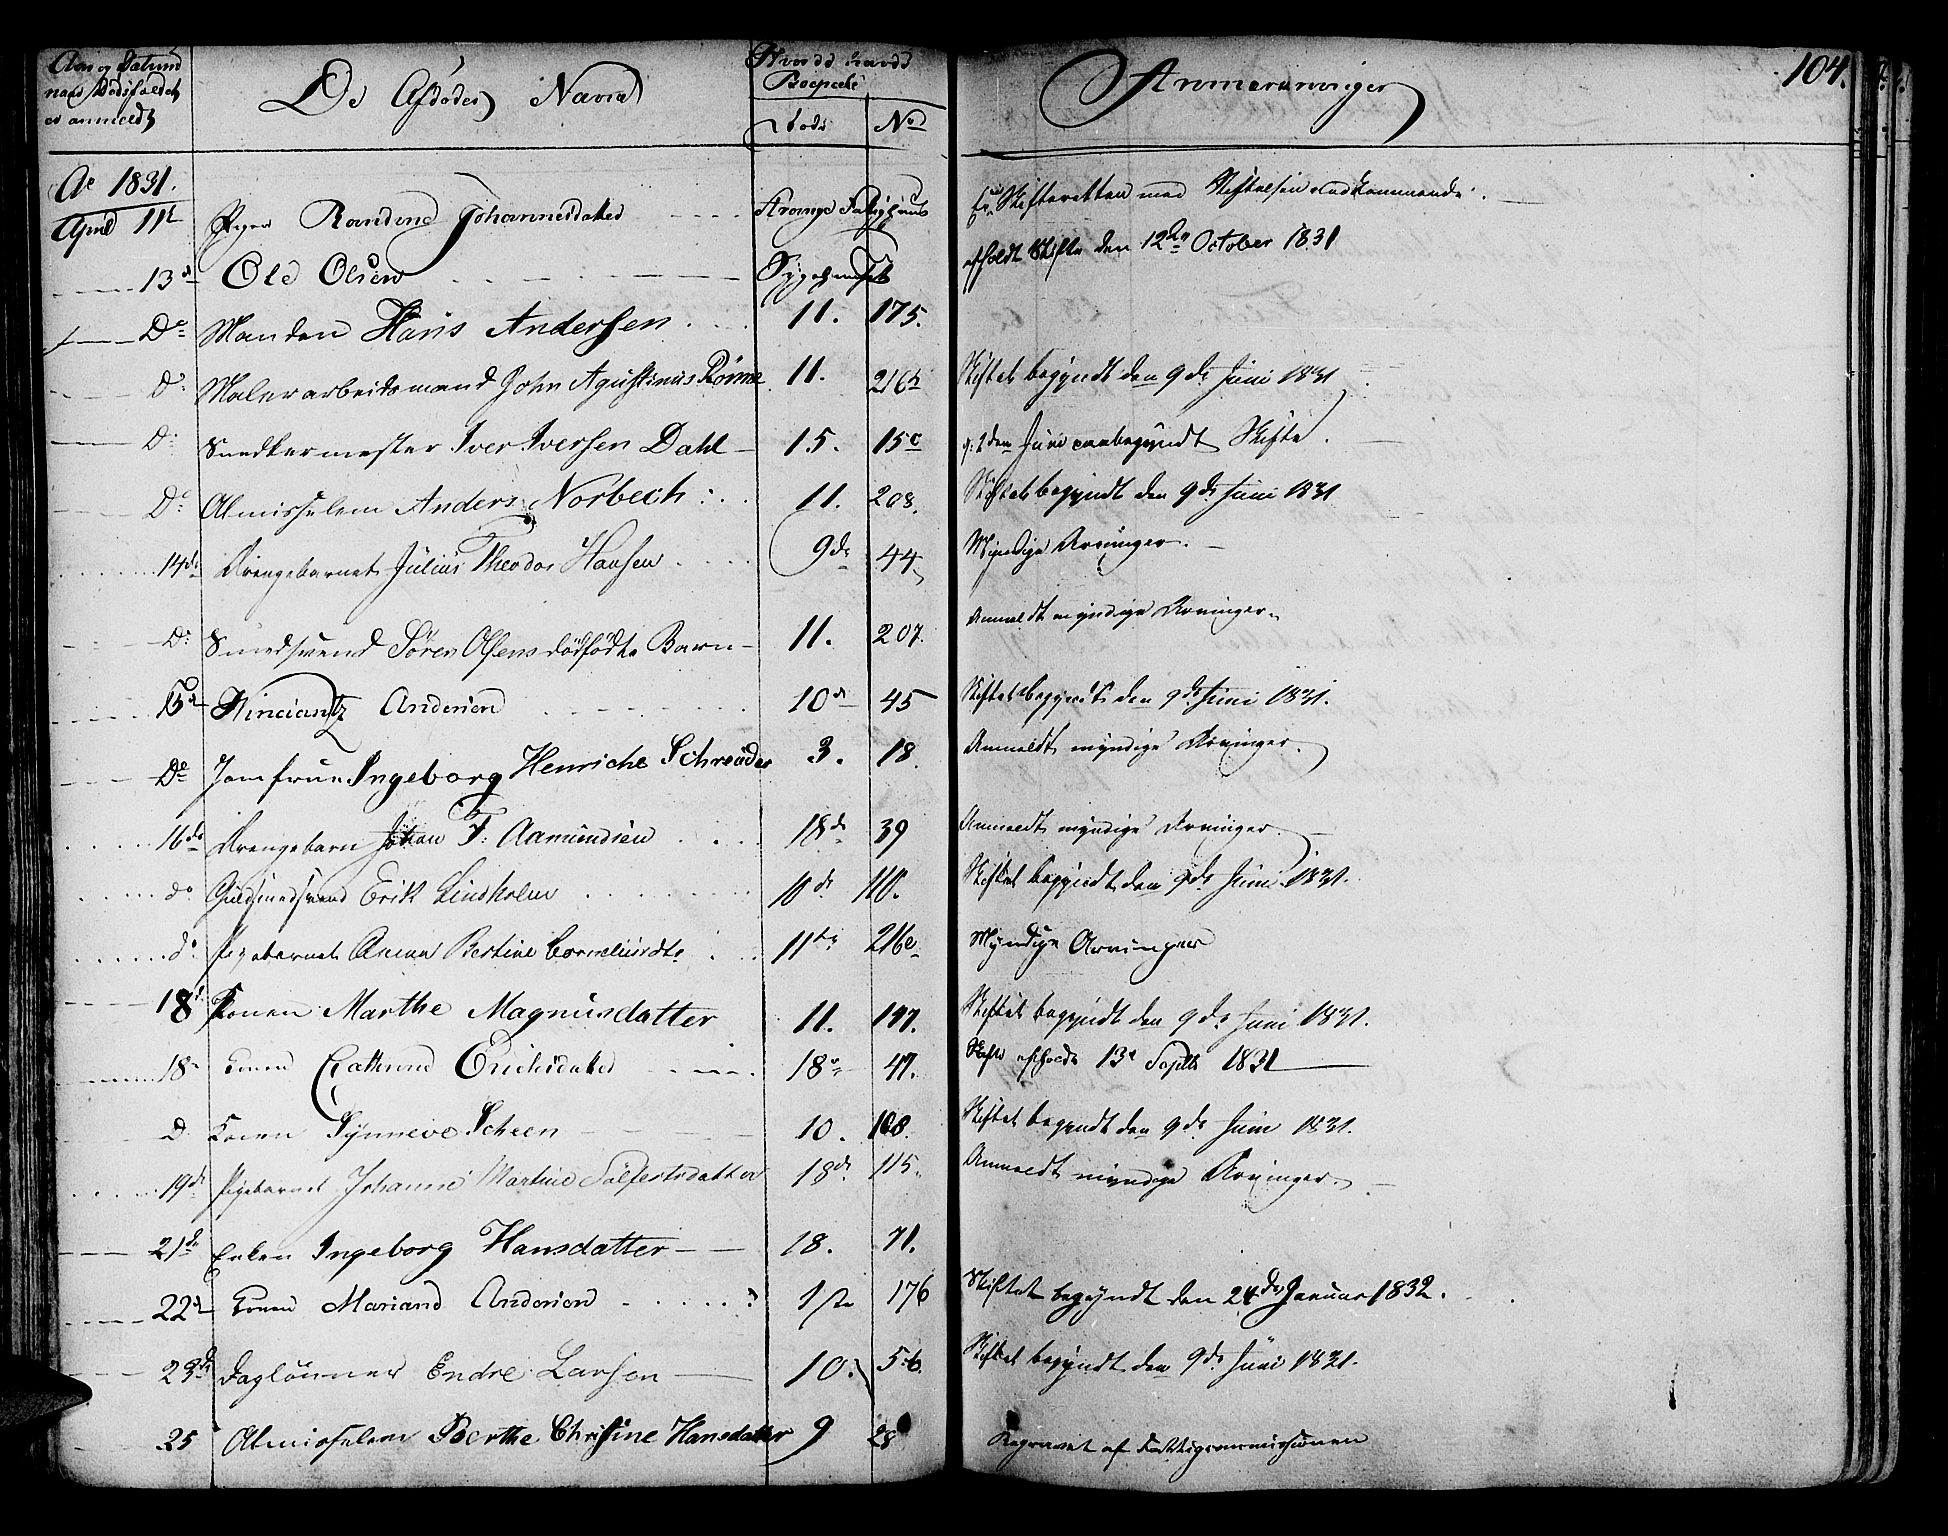 104.
Aar og Datum
naar Dødsfaldet
er anmeldt
De Afdødes Navne
Hvad deres
Bopæle
Rode
No
Anmærkninger
Ao 1831.
April 11te Pigen Randine Johannesdatter Mange Fattighuus
Skifteretten med Skiftelsen vedkommende.
afholdt Skifte den 12te October 1831
13de Ole Olsen Sygehuset
Do Manden Hans Andersen 11. 175.
Do Malerarbeidsmand John Agustinus Rönne 11. 216b Skiftet begyndt den 9de Juni 1831
Do Snedkermester Iver Iversen Dahl 15. 15c 9de Juni paabegyndt Skifte.
Do Almisselem Anders Norbech 11. 208. Skiftet begyndt den 9de Juni 1831
14de Drengebarnet Julius Theodor Hansen 9de 44 Myndige Arvinger.
Do Smedsvend Sören Olsens dödfödte Barn 11. 207. Anmeldt myndige Arvinger.
15de Andersen 10de 45 Skiftet begyndt den 9de Juni 1831.
Do Jomfrue Ingeborg Henriche Schreuder 3. 18. Anmeldt myndige Arvinger.
16de Drengebarn Johan F. Aamundsen 18de 39 Anmeldt myndige Arvinger.
do Guldsmedsvend Erik Lindholm 10de 110. Skiftet begyndt den 9de Juni 1831.
do Pigebarnet Anna Bertine Corneliusdtr 11te 216e Myndige Arvinger
18de Konen Marthe Magnusdatter 11. 197. Skiftet begyndt den 9de Juni 1831.
18de Konen Cathrine Erichsdatter 18de 47. Skifte afholdt 13de Septbr 1831
D Konen Synneve Scheen 10. 108. Skiftet begyndt den 9de Juni 1831.
19de Pigebarnet Johanne Martine Salfestsdatter 18de 115. Anmeldt myndige Arvinger.
21de Enken Ingeborg Hansdatter 18. 71.
22de Konen Mariane Andersen 1ste 176 Skiftet begyndt den 24de Januar 1832.
23de Daglönner Endre Larsen 10. 56. Skiftet begyndt den 9de Juni 1831.
25 Almisselem Berthe Christine Hansdatter 9 28 Begravet af Fattigcommissionen